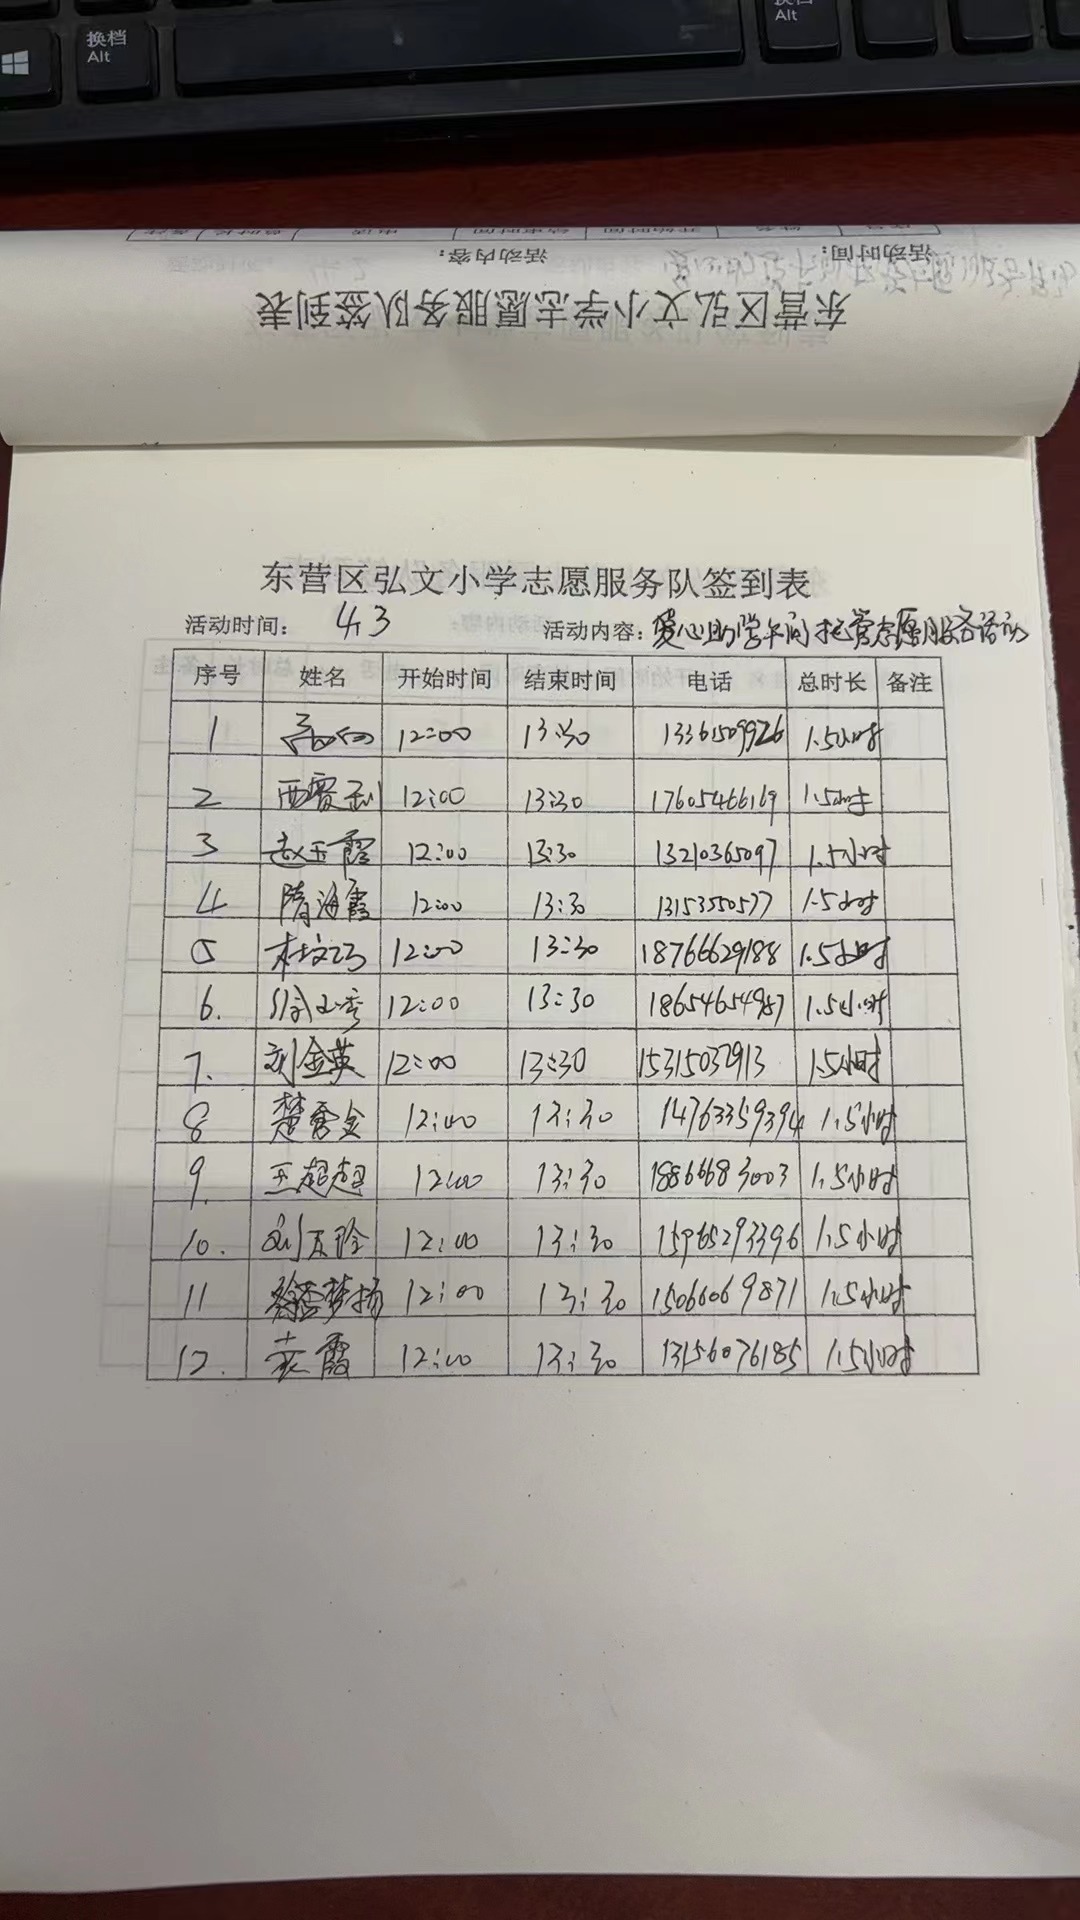 换档
Alt
换档
Alt
活动时间： 活动内容：
东营区弘文小学志愿服务队签到表
东营区弘文小学志愿服务队签到表
活动时间： 4.3 活动内容：爱心助学午间托管志愿服务活动
序号 姓名 开始时间 结束时间 电话 总时长 备注
1 12:00 13:30 13361509926 1.5小时
2 12:00 13:30 17605466169 1.5小时
3 赵玉霞 12:00 13:30 13210365097 1.5小时
4 隋海霞 12:00 13:30 13153550577 1.5小时
5 12:00 13:30 18766629188 1.5小时
6. 12:00 13:30 18654654957 1.5小时
7. 刘金英 12:00 13:30 15315037913 1.5小时
8 楚秀金 12:00 13:30 14763359394 1.5小时
9. 王超超 12:00 13:30 18866683003 1.5小时
10. 12:00 13:30 15965293396 1.5小时
11 12:00 13:30 15066069871 1.5小时
12. 袁霞 12:00 13:30 13156076185 1.5小时